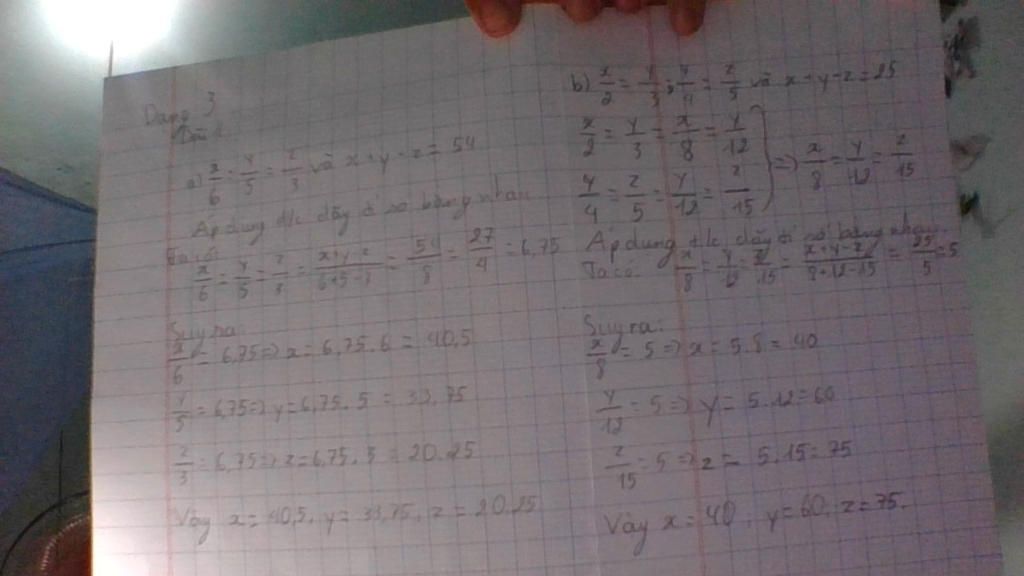 Dạng 3
Bài 1
a) x/6 = y/5 = z/3 và x + y - z = 54
Áp dụng t/c dãy tỉ số bằng nhau
Ta có:
x/6 = y/5 = z/3 = x+y-z/6+5-3 = 54/8 = 27/4 = 6,75
Suy ra:
x/6 = 6,75 => x = 6,75.6 = 40,5
y/5 = 6,75 => y = 6,75.5 = 33,75
z/3 = 6,75 => z = 6,75.3 = 20,25
Vậy x = 40,5, y = 33,75, z = 20,25
b) x/2 = y/3; y/4 = z/5 và x + y - z = 25
x/2 = y/3 = x/8 = y/12
y/4 = z/5 = y/12 = z/15 } => x/8 = y/12 = z/15
Áp dụng t/c dãy tỉ số bằng nhau
Ta có: x/8 = y/12 = z/15 = x+y-z/8+12-15 = 25/5 = 5
Suy ra:
x/8 = 5 => x = 5.8 = 40
y/12 = 5 => y = 5.12 = 60
z/15 = 5 => z = 5.15 = 75
Vậy x = 40, y = 60, z = 75.